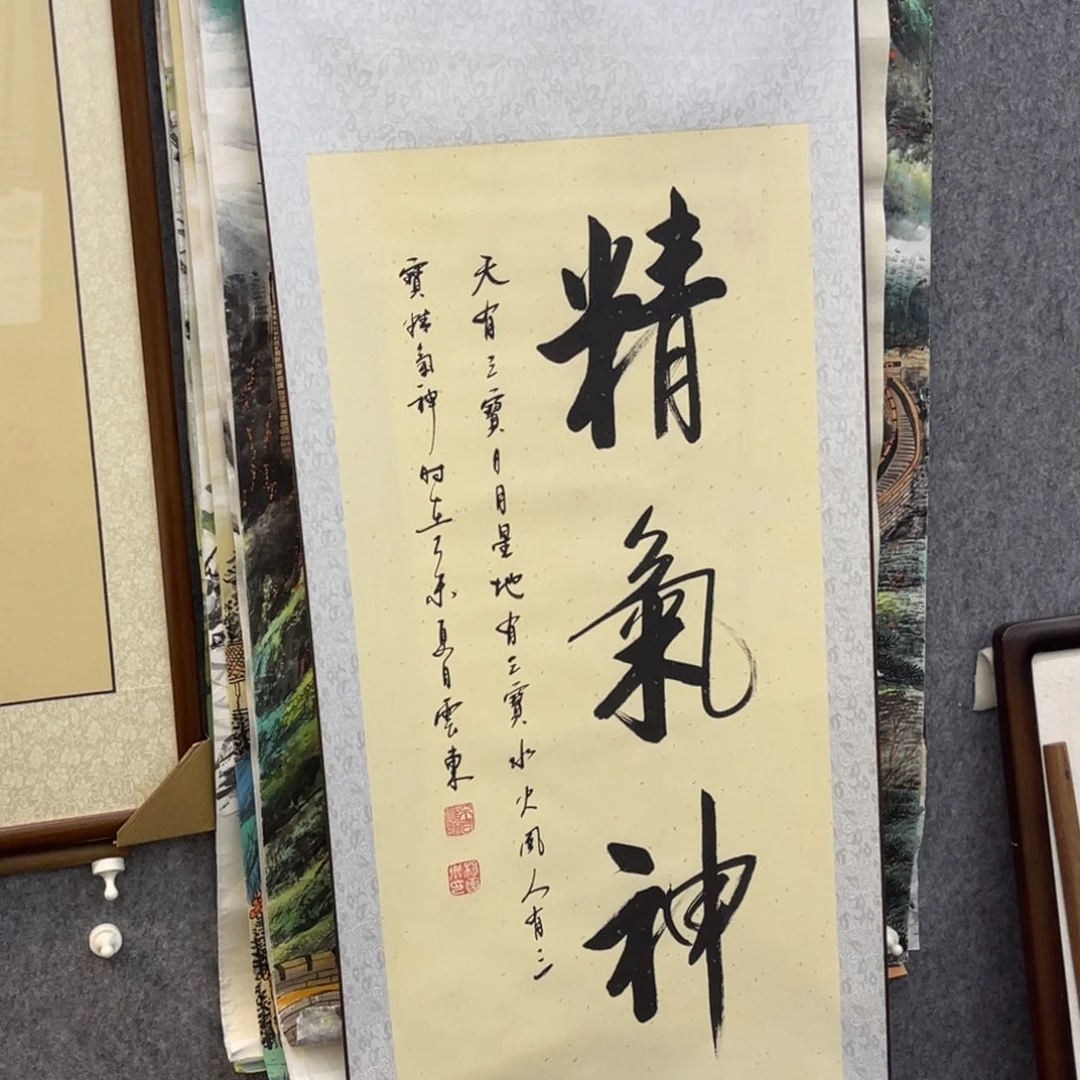 精氣神
天有三寶日月星地有三寶水火風人有三
寶精氣神時在乙未夏月雲東